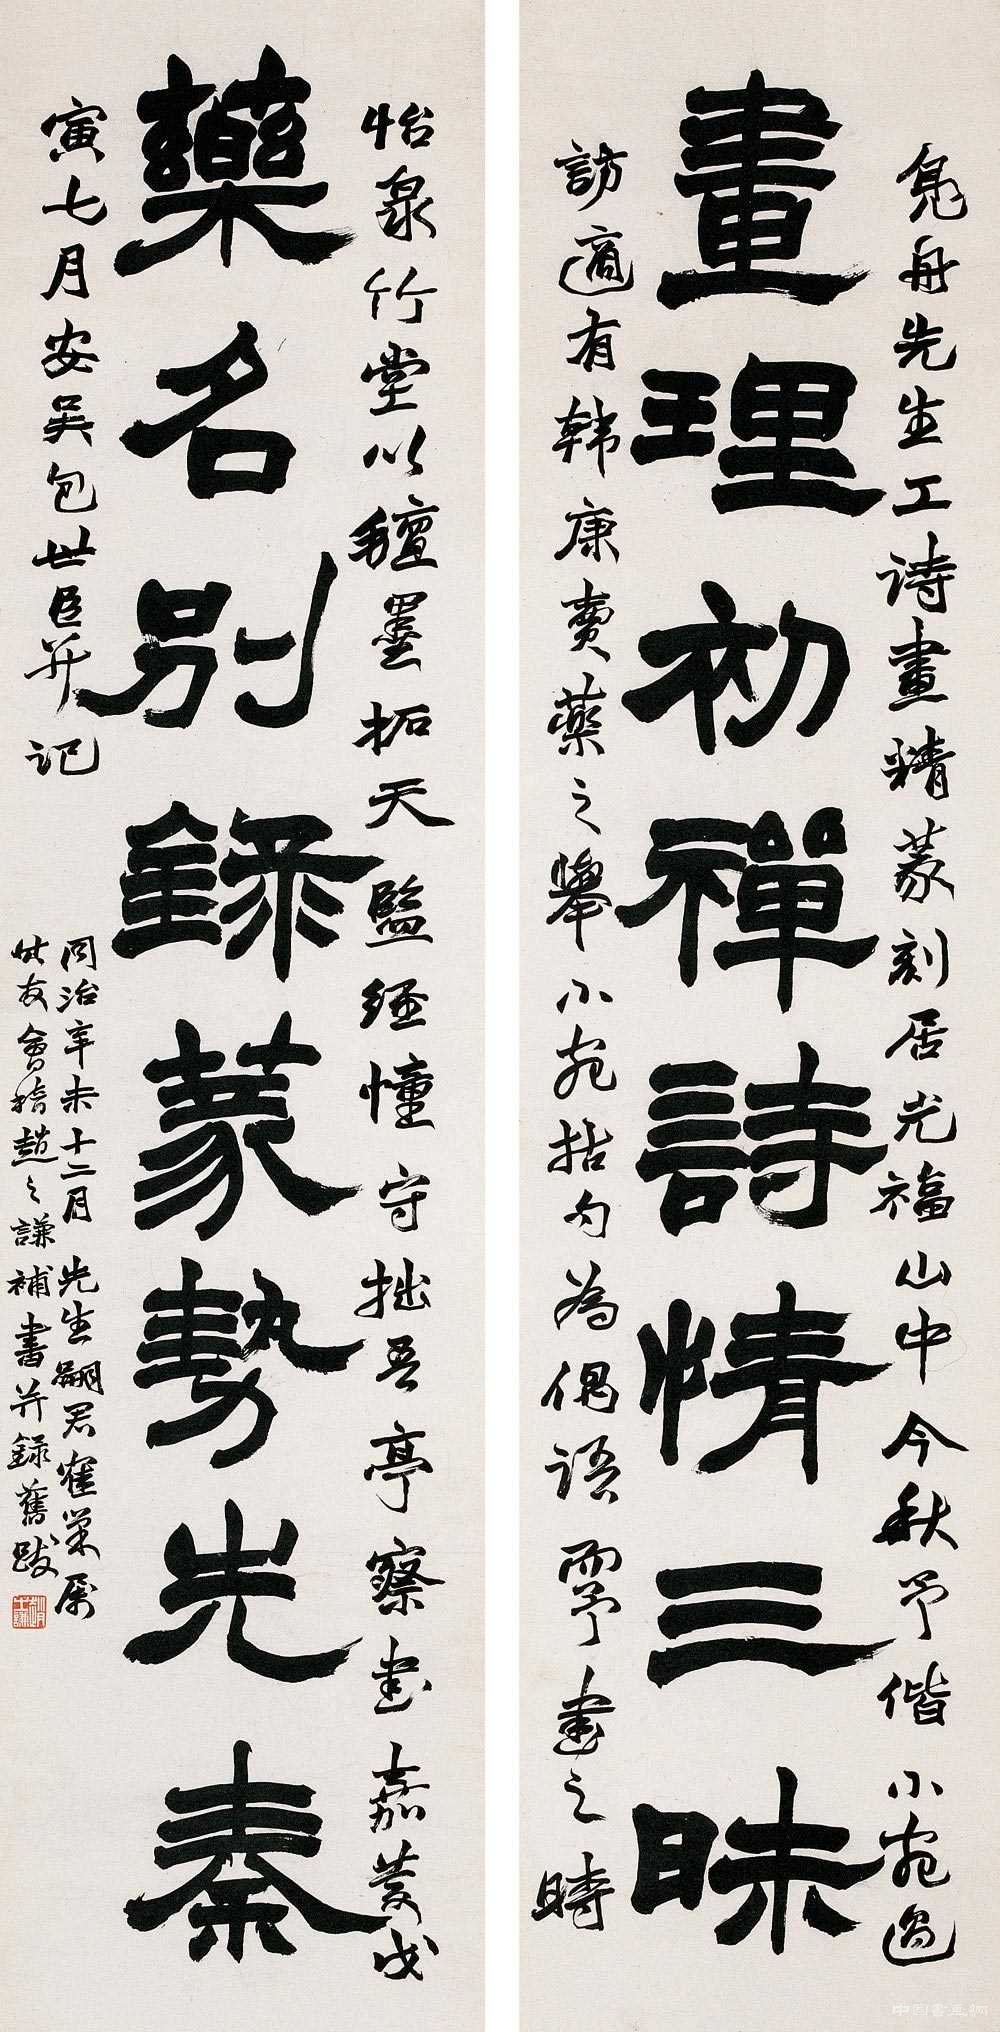 鳧舟先生工詩畫精篆刻居光福山中今秋予偕小宛過
畫理初禪詩情三昧
訪適有韓康賣藥之舉小宛拈句為偶語而予書之時
怡泉竹堂以氊墨拓天監經幢守拙吾亭察書嘉慶戊
藥名別錄篆勢先秦
寅七月安吳包世臣并記
同治辛未十二月先生嗣君寉巢屬
友會稽趙之謙補書并錄舊跋